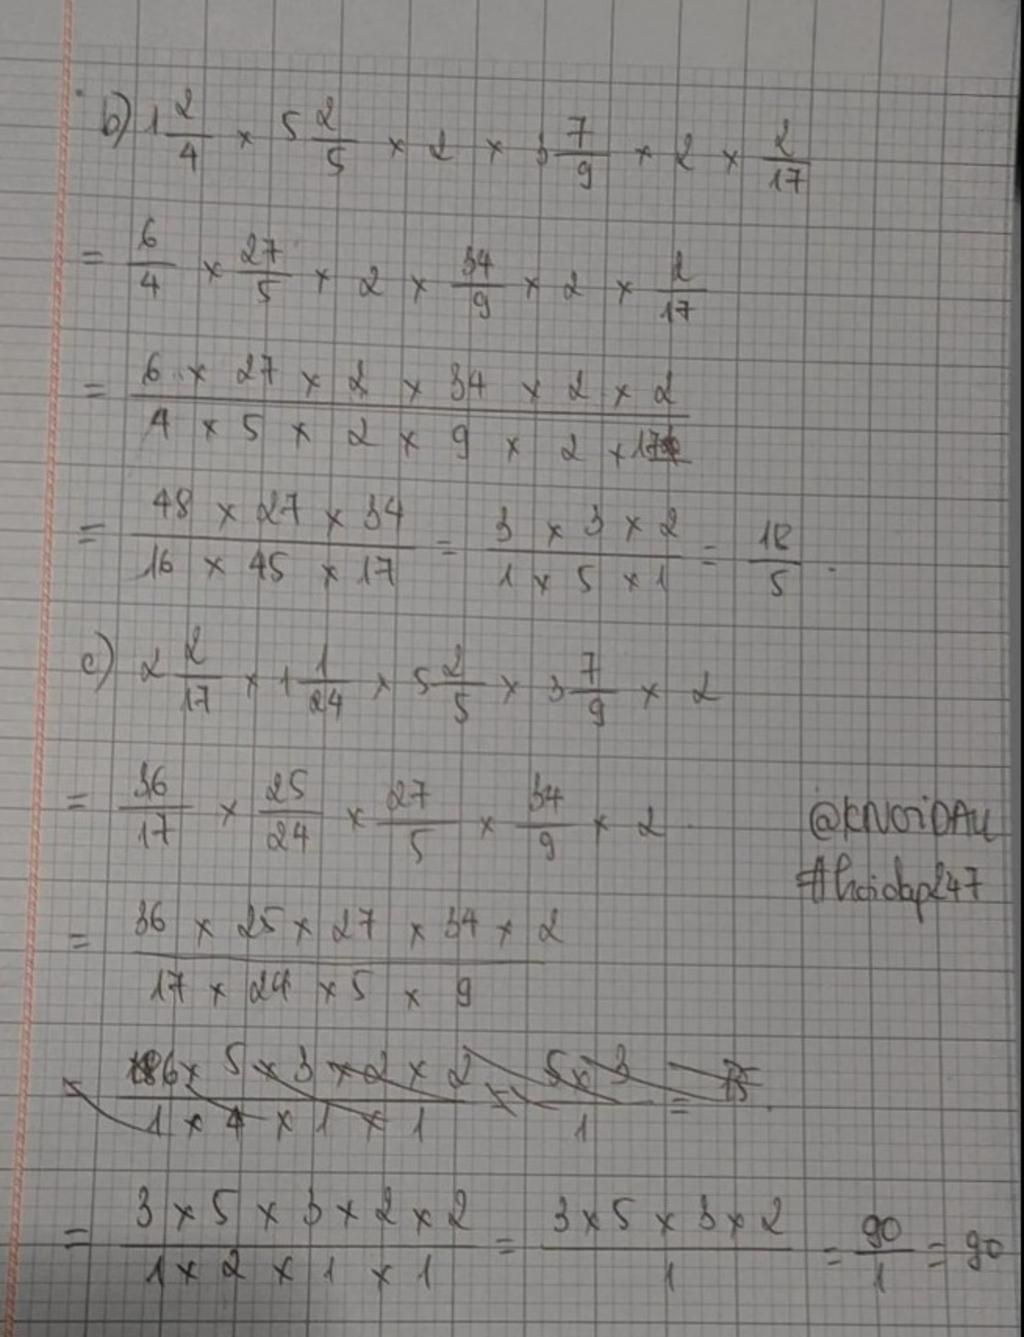 b) 1 2/4 × 5 2/5 × 2 × 3 7/9 × 2 × 2/17
= 6/4 × 27/5 × 2 × 34/9 × 2 × 2/17
= (6 × 27 × 2 × 34 × 2 × 2)/(4 × 5 × 2 × 9 × 2 × 17)
= (48 × 27 × 34)/(16 × 45 × 17) = (3 × 3 × 2)/(1 × 5 × 1) = 18/5 .
c) 2 2/17 × 1 1/24 × 5 2/5 × 3 7/9 × 2
= 36/17 × 25/24 × 27/5 × 34/9 × 2
@KNOiDAU
#hoidap247
= (36 × 25 × 27 × 34 × 2)/(17 × 24 × 5 × 9)
= (3 × 5 × 3 × 2 × 2)/(1 × 2 × 1 × 1) = (3 × 5 × 3 × 2)/1 = 90/1 = 90